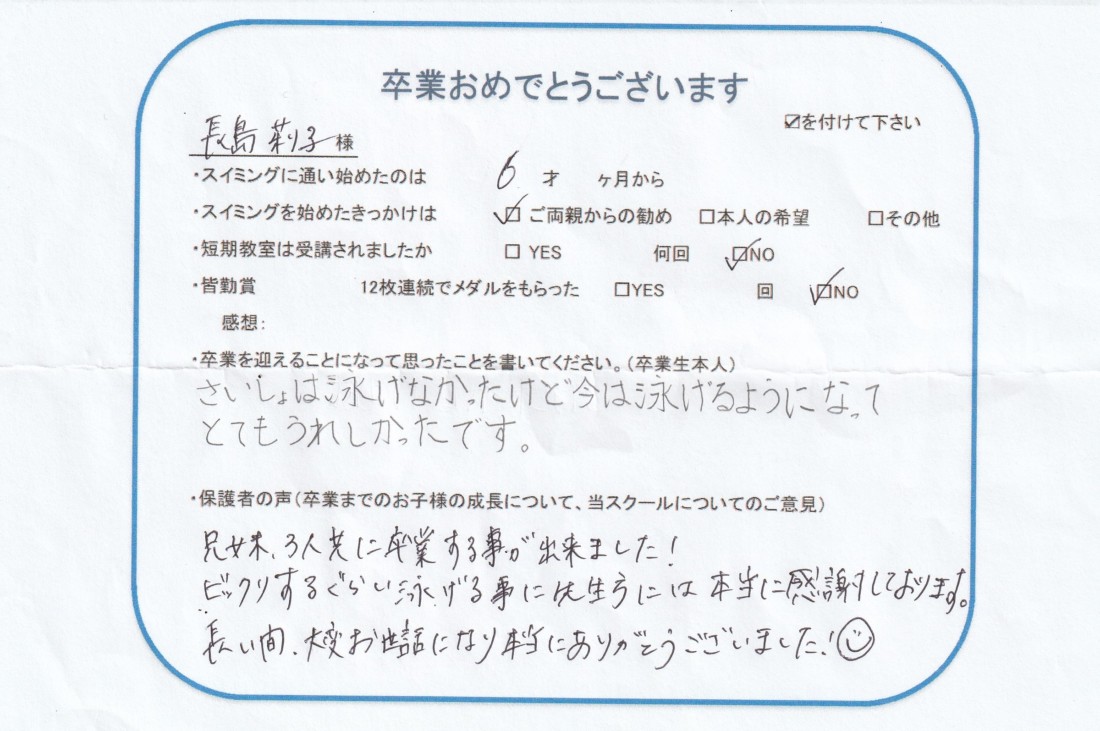 卒業おめでとうございます
☑を付けて下さい
長島 莉子 様
・スイミングに通い始めたのは 6 才 ヶ月から
・スイミングを始めたきっかけは ☑ご両親からの勧め □本人の希望 □その他
・短期教室は受講されましたか □ YES 何回 ☑NO
・皆勤賞 12枚連続でメダルをもらった □YES 回 ☑NO
感想:
・卒業を迎えることになって思ったことを書いてください。(卒業生本人)
さいしょは泳げなかったけど今は泳げるようになって
とてもうれしかったです。
・保護者の声(卒業までのお子様の成長について、当スクールについてのご意見)
兄妹、3人共に卒業する事が出来ました!
ビックリするぐらい泳げる事に先生方には本当に感謝しております。
長い間、大変お世話になり本当にありがとうございました!